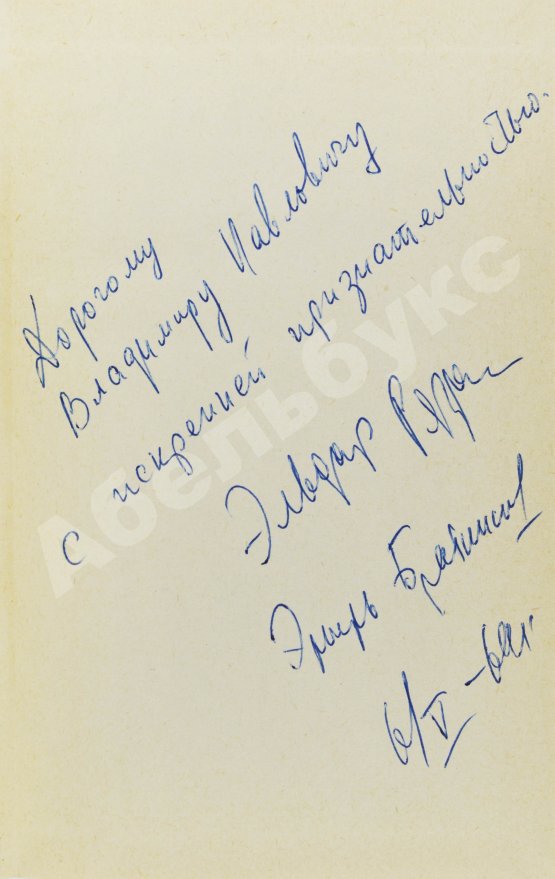 Дорогому
Владимиру Павловичу
с искренней признательностью.
Эльдар Рязан
Эмиль Брагинский
6/V–69г
Абельбукс